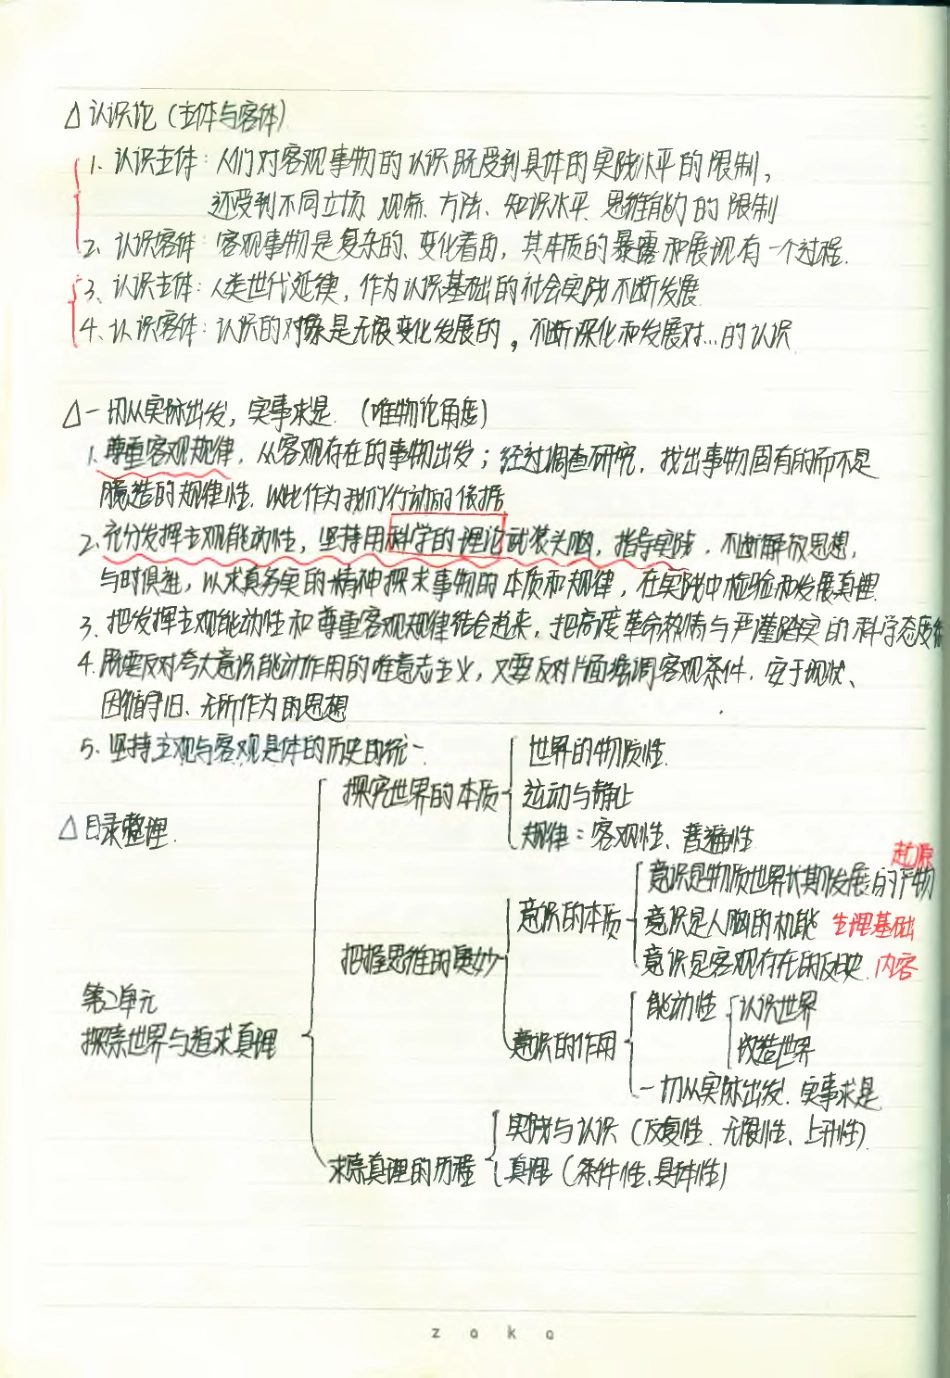 △认识论(主体与客体)
1、认识主体:人们对客观事物的认识既受到具体的实践水平的限制,
还受到不同立场、观点、方法、知识水平、思维能力的限制
2、认识客体:客观事物是复杂的、变化着的,其本质的暴露和展现有一个过程.
3、认识主体:人类世代延续,作为认识基础的社会实践不断发展
4、认识客体:认识的对象是无限变化发展的,不断深化和发展对…的认识
△一切从实际出发,实事求是.(唯物论角度)
1、尊重客观规律,从客观存在的事物出发;经过调查研究,找出事物固有的而不是
臆造的规律性,以此作为我们行动的依据
2、充分发挥主观能动性,坚持用科学的理论武装头脑,指导实践,不断解放思想,
与时俱进,以求真务实的精神探求事物的本质和规律,在实践中检验和发展真理.
3、把发挥主观能动性和尊重客观规律结合起来,把高度革命热情与严谨踏实的科学态度
4、既要反对夸大意识能动作用的唯意志主义,又要反对片面强调客观条件,安于现状、
因循守旧、无所作为的思想
5、坚持主观与客观具体的历史的统一
△目录整理.
第2单元
探索世界与追求真理
探究世界的本质
世界的物质性.
运动与静止
规律:客观性、普遍性
把握思维的奥妙
意识的本质
意识是物质世界长期发展的产物 起源
意识是人脑的机能 生理基础
意识是客观存在的反映 内容
意识的作用
能动性
认识世界
改造世界
一切从实际出发,实事求是
求索真理的历程
实践与认识(反复性、无限性、上升性)
真理(条件性、具体性)
zoko